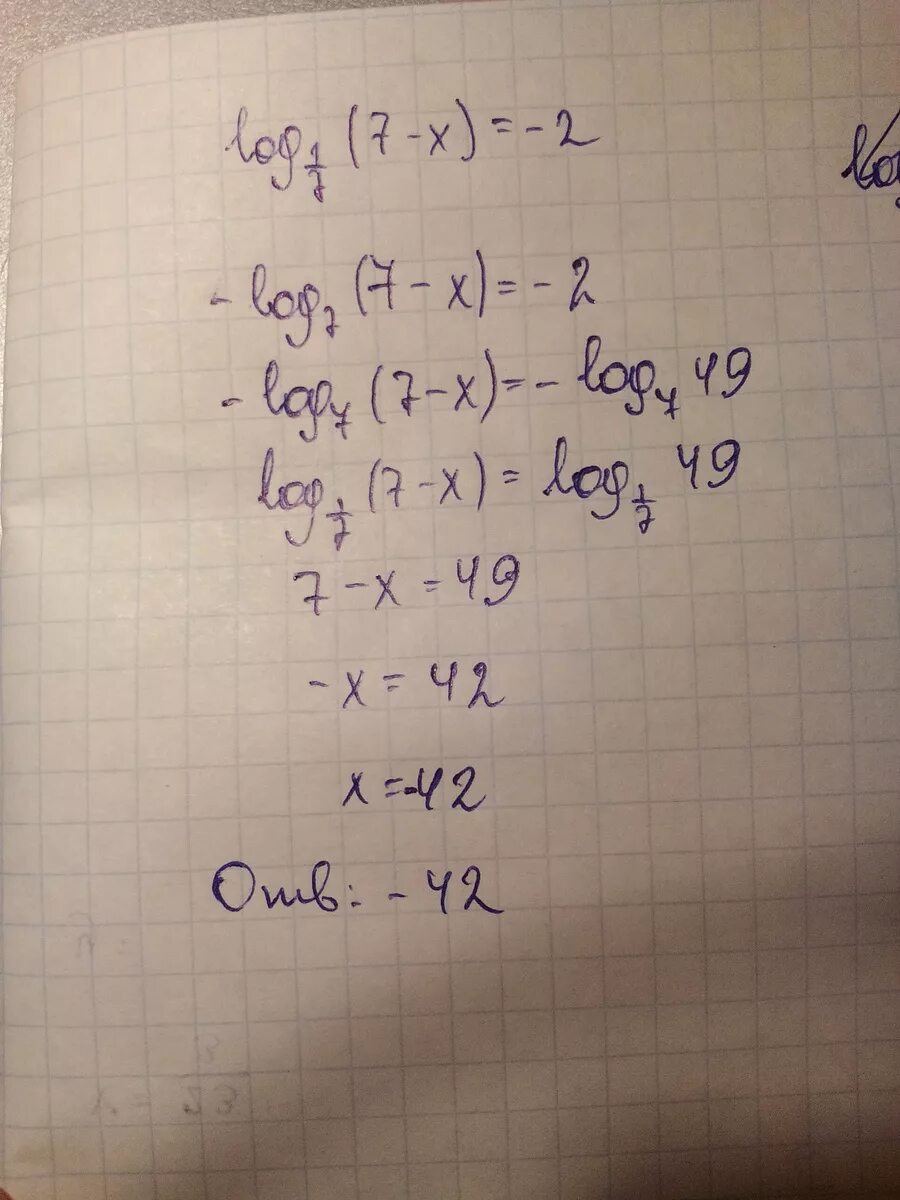 log_{1/7} (7-x) = -2
-log_7 (7-x) = -2
-log_7 (7-x) = -log_7 49
log_{1/7} (7-x) = log_{1/7} 49
7-x = 49
-x = 42
x = -42
Отв: -42